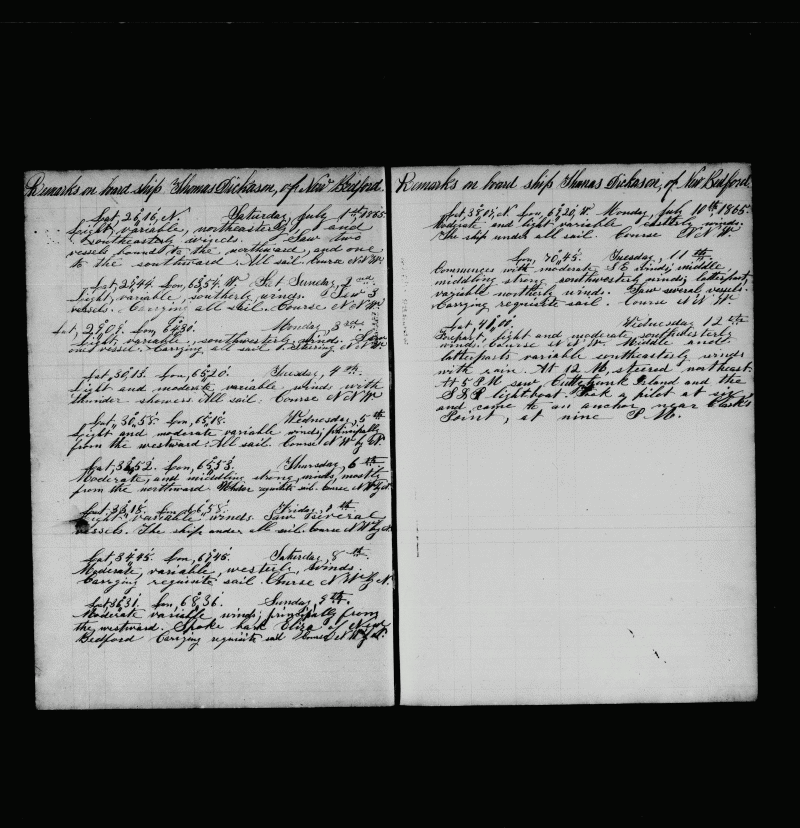 Remarks on board ship Thomas Dickason, of New Bedford.
Lat, 26,16, N. Saturday, July 1st, 1865.
Light, variable, northeasterly, and
southeasterly winds. Saw two
vessels bound to the northward, and one
to the southward. All sail. Course N N W.
Lat, 27,44. Lon, 63,54. W. Sunday, 2nd
Light, variable, southerly winds. Saw 3
vessels. Carrying all sail. Course N N W.
Lat, 29,07. Lon, 64,30. Monday, 3rd
Light, variable, southwesterly wind. Saw
one vessel. Carrying all sail. Steering N N W.
Lat, 30,13. Lon, 65,20. Tuesday, 4th.
Light and moderate variable winds with
thunder showers. All sail. Course N N W
Lat, 30,58. Lon, 65,18. Wednesday, 5th
Light and moderate variable winds, principally
from the westward. All sail. Course N W by N.
Lat, 32,52. Lon, 65,53. Thursday, 6th
Moderate, and middling strong winds, mostly
from the northward. Under requisite sail. Course N W by N
Friday, 7th
Light variable winds. Saw several
vessels. The ship under all sail. Course N W by N.
Lat, 34,45. Lon, 67,45. Saturday, 8th
Moderate, variable, westerly, winds.
Carrying requisite sail. Course N W by N.
Lat, 36,31. Lon, 68,36. Sunday, 9th.
Moderate variable winds, principally from
the westward. Spoke bark Eliza of New
Bedford Carrying requisite sail Course N W by N.
Remarks on board ship Thomas Dickason, of New Bedford.
Lat, 38,05, N. Lon, 69,20, W. Monday, July 10th, 1865.
Moderate and light variable easterly winds.
The ship under all sail. Course N N W.
Lon, 70,45. Tuesday, 11th
Commences with moderate S E winds, middle
middling strong southwesterly winds, latterpart,
variable northerly winds. Saw several vessels.
Carrying requisite sail. Course N N W
Lat, 41,00. Wednesday 12th
Firspart, light and moderate southwesterly
winds. Course N N W. Middle and
latterparts variable southeasterly winds
with rain. At 12 M, steered northeast.
At 5 P M saw Cuttyhunk Island and the
S & P lightboat. Took a pilot at six
and came to an anchor near Clark's
Point, at nine P. M.